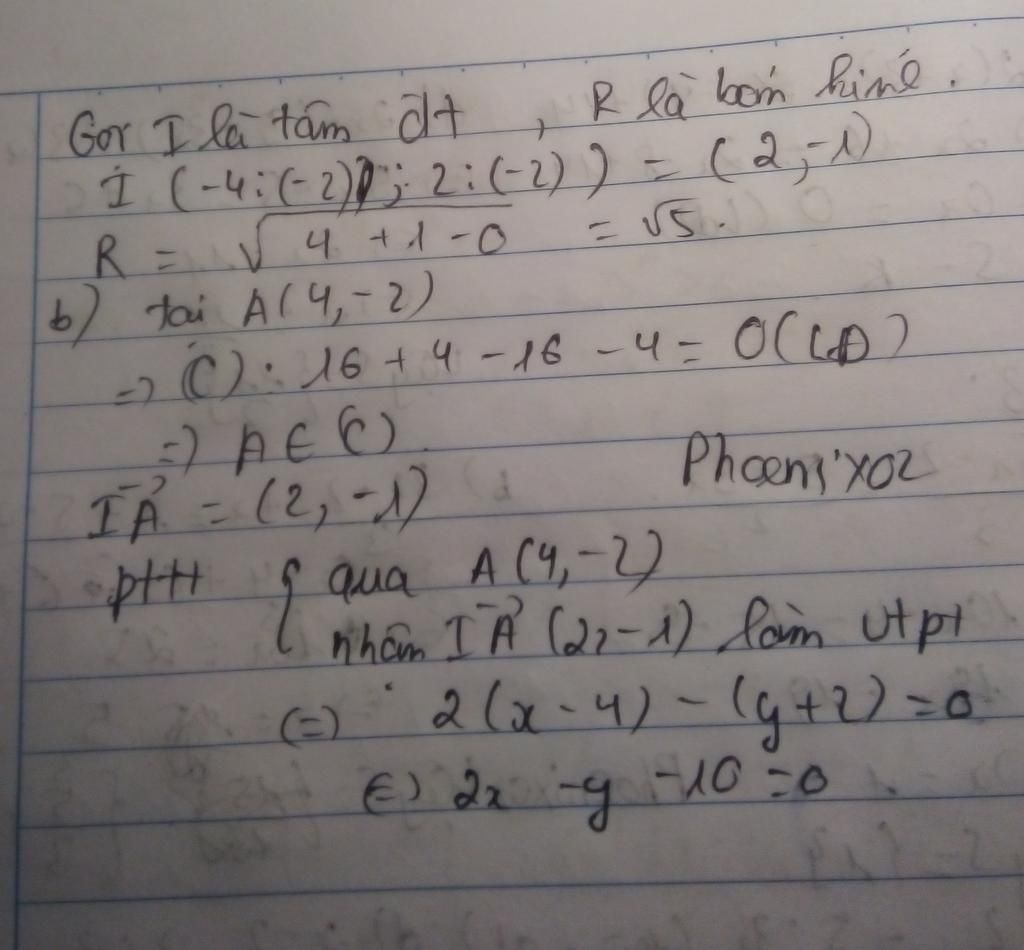 Gọi I là tâm đt , R là bán kính.
I (-4:(-2) ; 2:(-2)) = (2,-1)
R = √4+1-0 = √5.
b) tại A(4,-2)
=> (C): 16 + 4 - 16 - 4 = 0 (LĐ)
=> A ∈ (C).
IA = (2,-1)
Phoenix02
pttt { qua A(4,-2)
nhận IA (2,-1) làm vtpt
(=) 2(x-4) - (y+2) = 0
(=) 2x - y - 10 = 0.